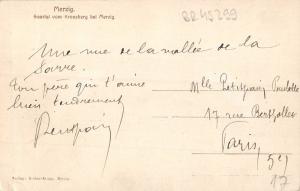 Merzig.
Saartal vom Kreuzberg bei Merzig.
RR45299
Une vue de la vallée de la
Sarre.
Ton père qui t'aime
bien tendrement
Mlle Petitpain Paulette
17 rue Berthollet
Paris
5e
17